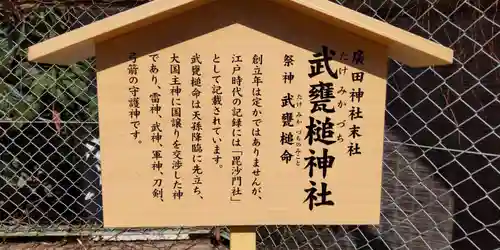 廣田神社末社
武甕槌神社
たけみかづち
祭神 武甕槌命
たけみかづちのみこと
創立年は定かではありませんが、
江戸時代の記録には「毘沙門社」
として記載されています。
武甕槌命は天孫降臨に先立ち、
大国主神に国譲りを交渉した神
であり、雷神、武神、軍神、刀剣、
弓箭の守護神です。